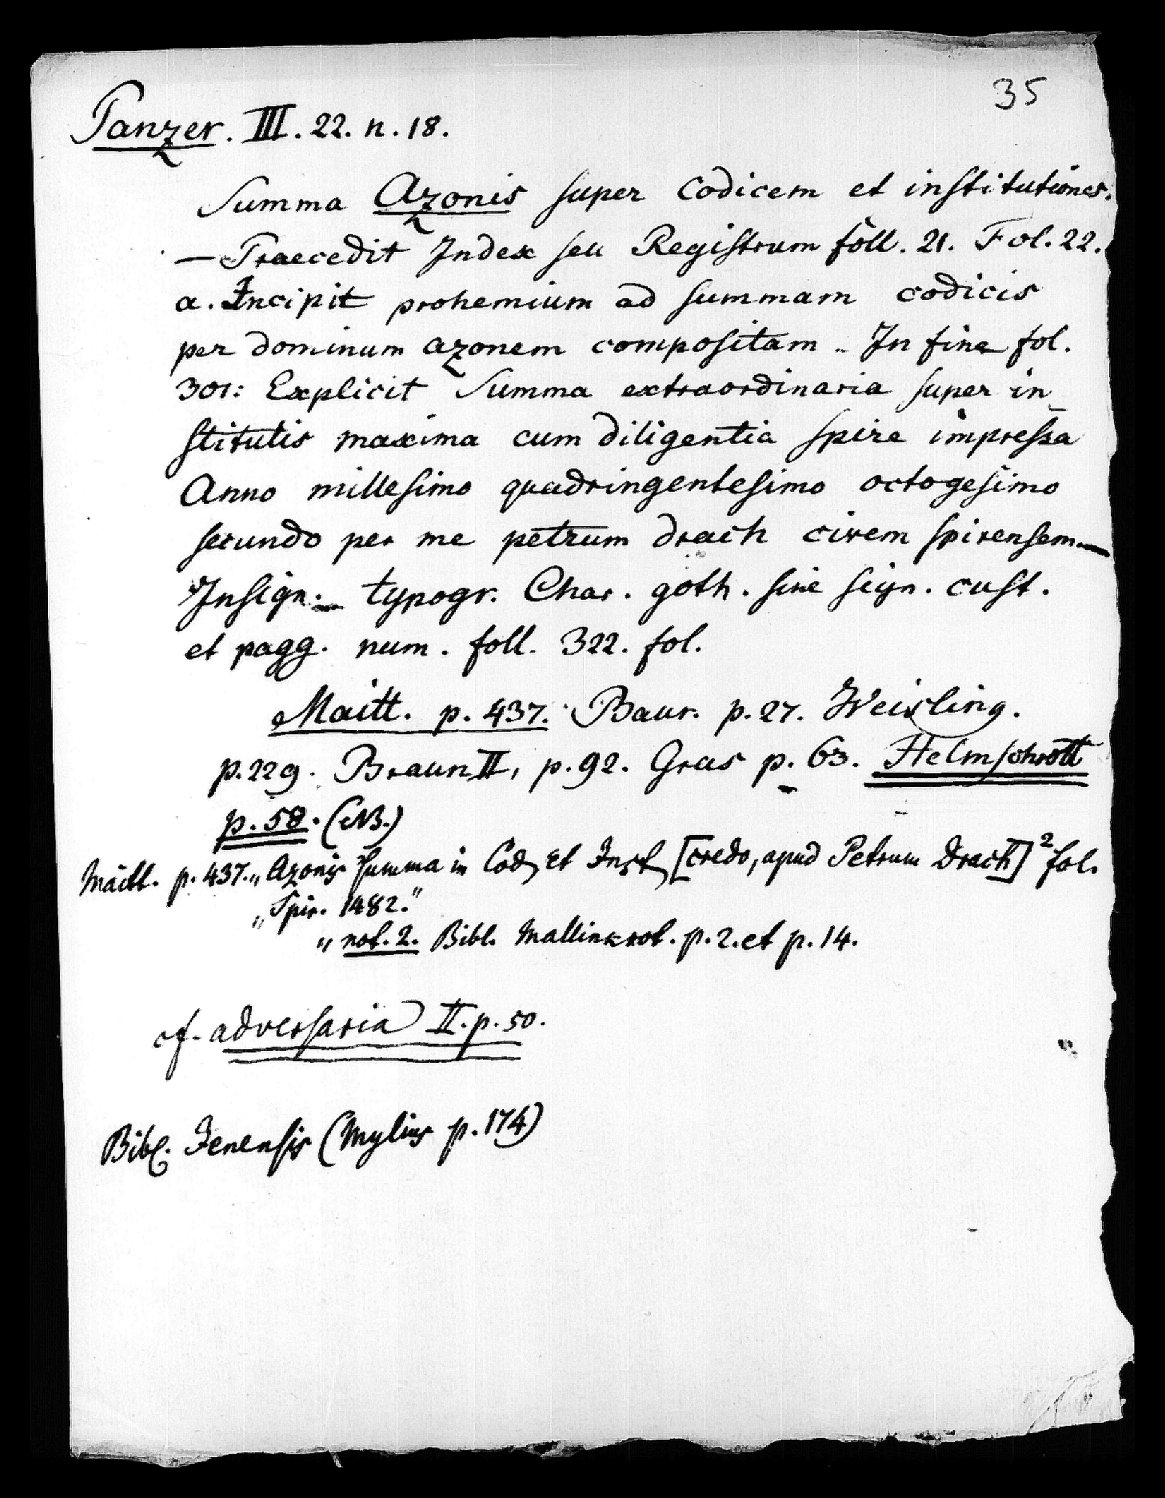 35
Panzer. III. 22. n. 18.
Summa Azonis super Codicem et institutiones.
— Praecedit Index seu Registrum foll. 21. Fol. 22.
a. Incipit prohemium ad summam codicis
per dominum azonem compositam .. In fine fol.
301: Explicit Summa extraordinaria super in
stitutis maxima cum diligentia spire impressa
Anno millesimo quadringentesimo octogesimo
secundo per me petrum drach civem spirensem —
Insign. — typogr. Char. goth. sine sign. cust.
et pagg. num. foll. 322. fol.
Maitt. p. 437. Baur. p. 27. Weisling.
p. 229. Braun II, p. 92. Gras p. 63. Helmschrott
p. 58. (NB.)
Maitt. p. 437. „Azonis Summa in Cod. et Inst. [credo, apud Petrum Drach] ² fol.
„Spir. 1482."
„ not. 2. Bibl. Mallinkrot. p. 2. et p. 14.
cf. adversaria II. p. 50.
Bibl. Jenensis (Mylius p. 174)